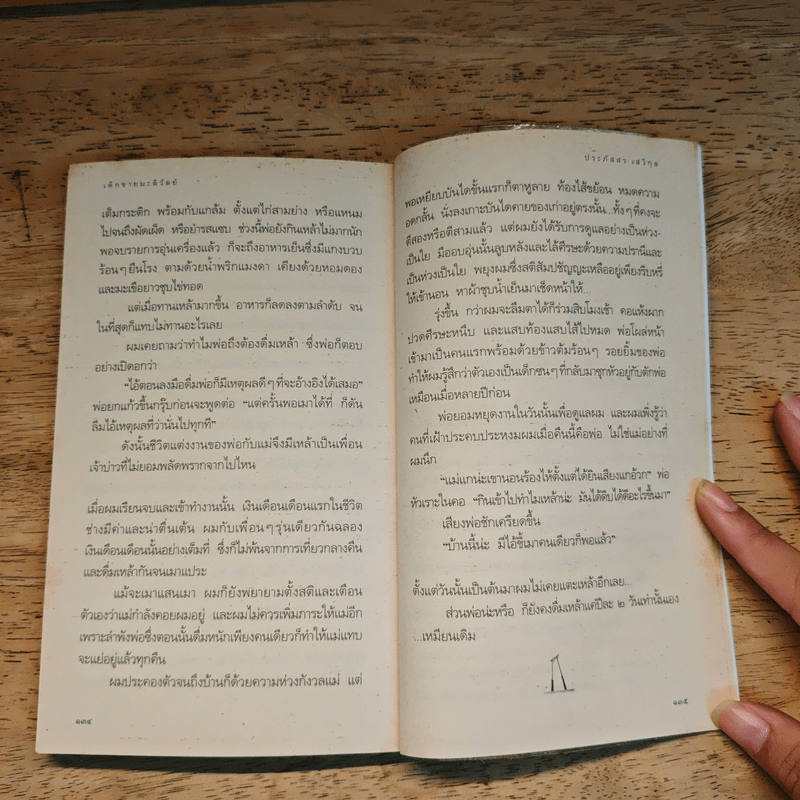 เด็กชายมะลิวัลย์
เต็มกระติก พร้อมกับแกล้ม ตั้งแต่ไก่สามย่าง หรือแหนม
ไปจนถึงผัดเผ็ด หรือย่ำรสแซบ ช่วงนี้พ่อยังกินเหล้าไม่มากนัก
พอจบรายการอุ่นเครื่องแล้ว ก็จะถึงอาหารเย็นซึ่งมีแกงบวบ
ร้อนๆ ยืนโรง ตามด้วยน้ำพริกแมงดา เคียงด้วยหอมดอง
และมะเขือยาวชุบไข่ทอด
แต่เมื่อทานเหล้ามากขึ้น อาหารก็ลดลงตามลำดับ จน
ในที่สุดก็แทบไม่ทานอะไรเลย
ผมเคยถามว่าทำไมพ่อถึงต้องดื่มเหล้า ซึ่งพ่อก็ตอบ
อย่างเปิดอกว่า
“ไอ้ตอนลงมือดื่มพ่อก็มีเหตุผลดีๆ ที่จะอ้างอิงได้เสมอ”
พ่อยกแก้วขึ้นกรุ๊บก่อนจะพูดต่อ “แต่ครั้นพอเมาได้ที่ ก็ดัน
ลืมไอ้เหตุผลที่ว่านั่นไปทุกที”
ดังนั้นชีวิตแต่งงานของพ่อกับแม่จึงมีเหล้าเป็นเพื่อน
เจ้าบ่าวที่ไม่ยอมพลัดพรากจากไปไหน
เมื่อผมเรียนจบและเข้าทำงานนั้น เงินเดือนเดือนแรกในชีวิต
ช่างมีค่าและน่าตื่นเต้น ผมกับเพื่อนๆ รุ่นเดียวกันฉลอง
เงินเดือนเดือนนั้นอย่างเต็มที่ ซึ่งก็ไม่พ้นจากการเที่ยวกลางคืน
และดื่มเหล้ากันจนเมาแประ
แม้จะเมาแสนเมา ผมก็ยังพยายามตั้งสติและเตือน
ตัวเองว่าแม่กำลังคอยผมอยู่ และผมไม่ควรเพิ่มภาระให้แม่อีก
เพราะลำพังพ่อซึ่งตอนนั้นดื่มหนักเพียงคนเดียวก็ทำให้แม่แทบ
จะแย่อยู่แล้วทุกคืน
ผมประคองตัวจนถึงบ้านก็ด้วยความห่วงกังวลแม่ แต่
๑๓๔
ประภัสสร เสวิกุล
พอเหยียบบันไดขั้นแรกก็ตาหูลาย ท้องไส้ขย้อน หมดความ
อดกลั้น นั่งลงเกาะบันไดคายของเก่าอยู่ตรงนั้น...ทั้งๆ ที่คงจะ
ตีสองหรือตีสามแล้ว แต่ผมยังได้รับการดูแลอย่างเป็นห่วง-
เป็นใย มีมืออบอุ่นนั้นลูบหลังและไล้ศีรษะด้วยความปรานีและ
เป็นห่วงเป็นใย พยุงผมซึ่งสติสัมปชัญญะเหลืออยู่เพียงริบหรี่
ให้เข้านอน หาผ้าชุบน้ำเย็นมาเช็ดหน้าให้...
รุ่งขึ้น กว่าผมจะลืมตาได้ก็ร่วมสิบโมงเช้า คอแห้งผาก
ปวดศีรษะหนึบ และแสบท้องแสบไส้ไปหมด พ่อโผล่หน้า
เข้ามาเป็นคนแรกพร้อมด้วยข้าวต้มร้อนๆ รอยยิ้มของพ่อ
ทำให้ผมรู้สึกว่าตัวเองเป็นเด็กซนๆ ที่กลับมาซุกหัวอยู่กับตักพ่อ
เหมือนเมื่อหลายปีก่อน
พ่อยอมหยุดงานในวันนั้นเพื่อดูแลผม และผมเพิ่งรู้ว่า
คนที่เฝ้าประคบประหงมผมเมื่อคืนนี้คือพ่อ ไม่ใช่แม่อย่างที่
ผมนึก
“แม่แกน่ะเขานอนร้องไห้ตั้งแต่ได้ยินเสียงแกอ้วก” พ่อ
หัวเราะในคอ “กินเข้าไปทำไมเหล้าน่ะ มันได้ดิบได้ดีอะไรขึ้นมา”
เสียงพ่อชักเครียดขึ้น
“บ้านนี้น่ะ มีไอ้ขี้เมาคนเดียวก็พอแล้ว”
ตั้งแต่วันนั้นเป็นต้นมาผมไม่เคยแตะเหล้าอีกเลย...
ส่วนพ่อน่ะหรือ ก็ยังคงดื่มเหล้าแค่ปีละ ๒ วันเท่านั้นเอง
...เหมือนเดิม
๑๓๕